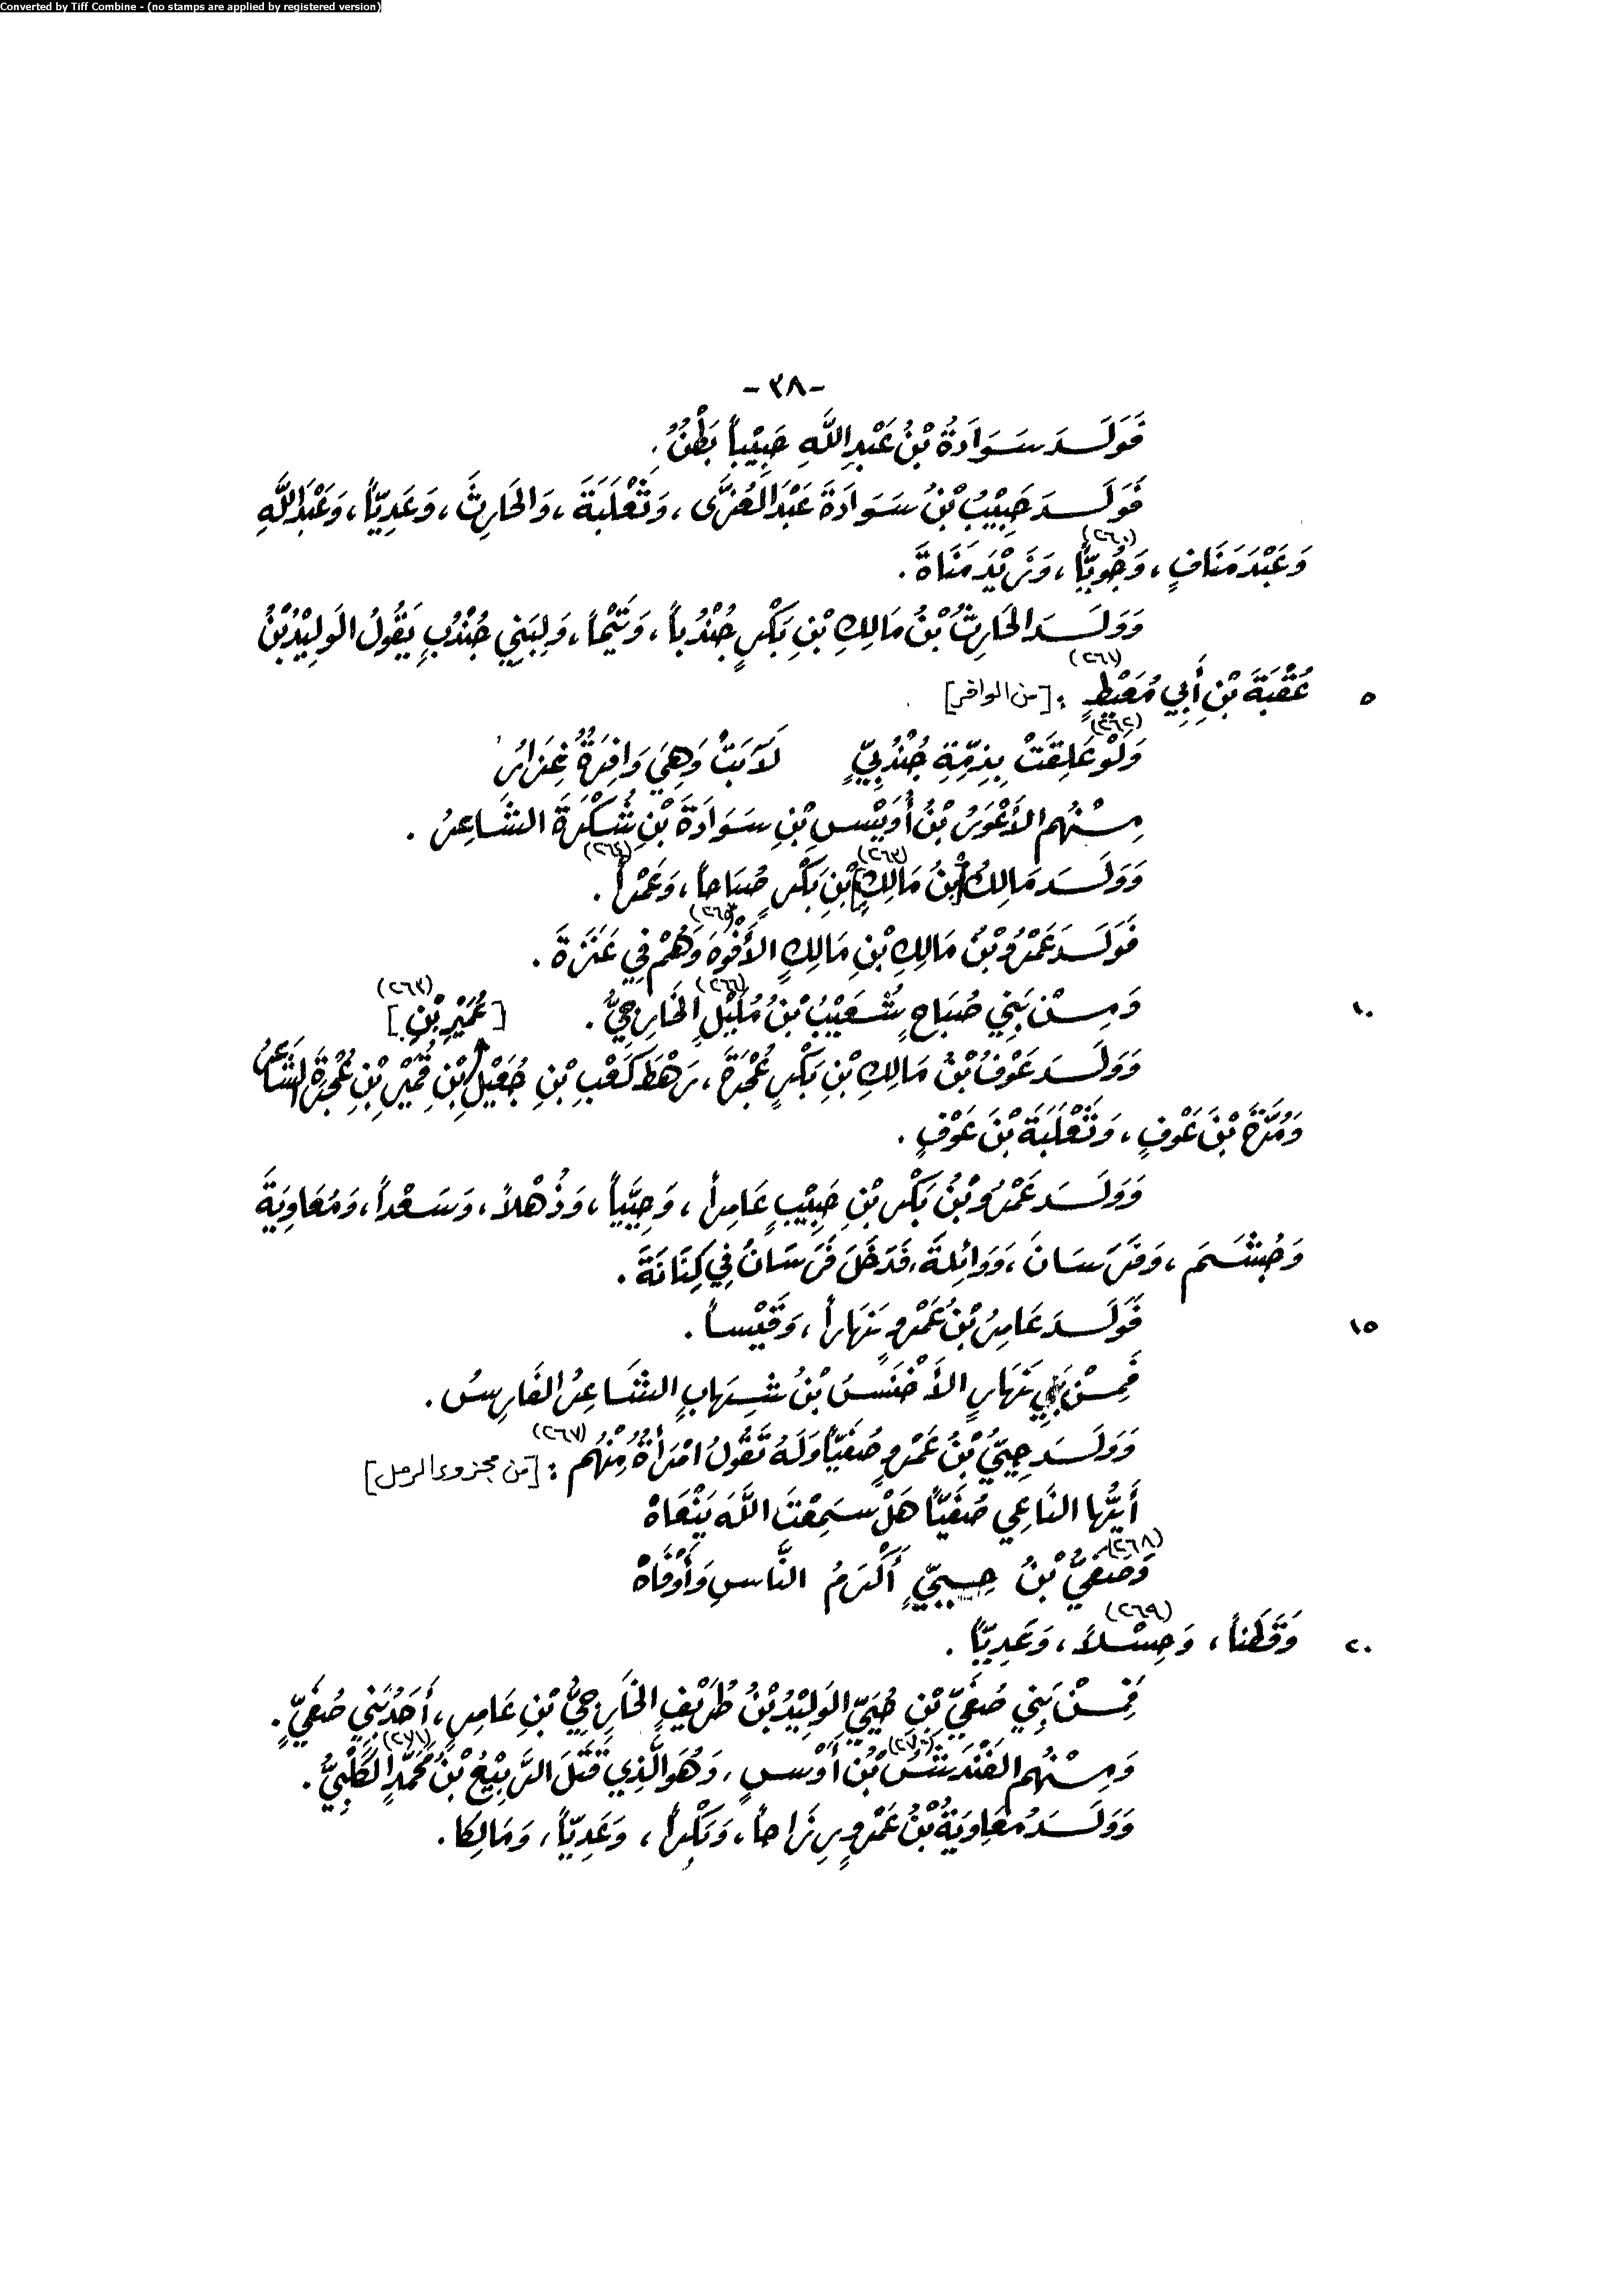 Converted by Tiff Combine - (no stamps are applied by registered version)
-٣٨-
فَوَلَدَ سَوَادَةُ بْنُ عَبْدِ اللَّهِ حَبِيْباً بَطْنٌ.
فَوَلَدَ حَبِيْبُ بْنُ سَوَادَةَ عَبْدَ العُزَّى، وَثَعْلَبَةَ، وَالحَارِثَ، وَعَدِيّاً، وَعَبْدَ اللَّهِ
وَعَبْدَ مَنَافٍ، وَجُوِيّاً (٢٦٠)، وَزَيْدَ مَنَاةَ.
وَوَلَدَ الحَارِثُ بْنُ مَالِكِ بْنِ بَكْرٍ جُنْدُباً، وَتَيْماً، وَلِبَنِي جُنْدُبٍ يَقُولُ الوَلِيْدُ بْنُ
٥ عُقْبَةَ بْنِ أَبِي مُعَيْطٍ (٢٦١): [من الوافر]
وَلَوْ عَلِقَتْ (٢٦٢) بِذِمَّةِ جُنْدُبِيٍّ لَآبَتْ وَهِيَ وَافِرَةٌ غِزَارُ
مِنْهُم الأَعْوَرُ بْنُ أُوَيْسِ بْنِ سَوَادَةَ بْنِ شُكْرَةَ الشَّاعِرُ.
وَوَلَدَ مَالِكُ [بْنُ مَالِكِ] (٢٦٣) بْنِ بَكْرٍ صُبَاحاً، وَعَمْراً (٢٦٤).
فَوَلَدَ عَمْرُو بْنُ مَالِكِ بْنِ مَالِكٍ الأَفْوَهَ (٢٦٥) وَهُمْ فِي عَنَزَةَ.
١٠ وَمِنْ بَنِي صُبَاحٍ شُعَيْبُ بْنُ مُلَيْلٍ (٢٦٦) الخَارِجِيُّ. [عُمَيْرِ بْنِ] (٢٦٣)
وَوَلَدَ عَوْفُ بْنُ مَالِكِ بْنِ بَكْرٍ عُجْرَةَ، رَهْطَ كَعْبِ بْنِ جُعَيْلِ بْنِ قُمَيْرِ بْنِ عُجْرَةَ الشَّاعِرُ
وَمُرَّةَ بْنَ عَوْفٍ، وَثَعْلَبَةَ بْنَ عَوْفٍ.
وَوَلَدَ عَمْرُو بْنُ بَكْرِ بْنِ حَبِيْبٍ عَامِراً، وَحِيَيّاً، وَذُهْلاً، وَسَعْداً، وَمُعَاوِيَةَ
وَجُشَمَ، وَفَرَسَانَ، وَوَائِلَةَ، فَدَخَلَ فَرَسَانُ فِي كِنَانَةَ.
١٥ فَوَلَدَ عَامِرُ بْنُ عَمْرٍو نَهَاراً، وَقَيْساً.
فَمِنْ بَنِي نَهَارٍ الأَخْنَسُ بْنُ شِهَابٍ الشَّاعِرُ الفَارِسُ.
وَوَلَدَ حِيَيُّ بْنُ عَمْرٍو صُفَيّاً وَلَهُ تَقُولُ امْرَأَةٌ مِنْهُم (٢٦٧): [من مجزوء الرمل]
أَيُّهَا النَّاعِي صُفَيّاً هَلْ سَمِعْتَ اللَّهَ يَنْعَاهْ
وَصُفَيُّ (٢٦٨) بْنُ حِيَيٍّ أَكْرَمُ النَّاسِ وَأَوْفَاهْ
٢٠ وَقَطَناً، وَحِسْلاً (٢٦٩)، وَعَدِيّاً.
فَمِنْ بَنِي صُفَيِّ بْنِ حُيَيٍّ الوَلِيْدُ بْنُ طَرِيْفٍ الخَارِجِيُّ بْنِ عَامِرٍ، أَحَدُ بَنِي صُفَيٍّ.
وَمِنْهُم الفَنْدَشَنُ (٢٧٠) بْنُ أَوْسٍ، وَهُوَ الَّذِي قَتَلَ الرَّبِيْعَ بْنَ مُحَمَّدٍ (٢٧١) الكَلْبِيَّ.
وَوَلَدَ مُعَاوِيَةُ بْنُ عَمْرٍو رِزَاحاً، وَبَكْراً، وَعَدِيّاً، وَمَالِكا.